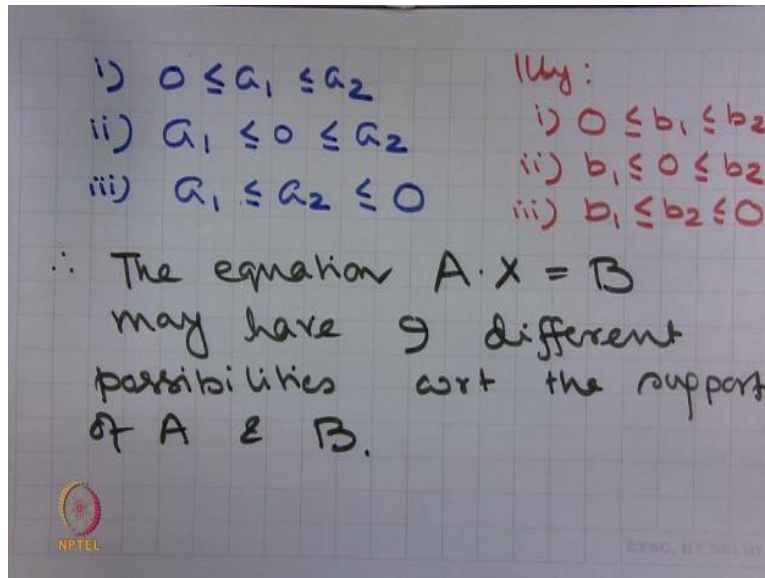 i) 0 ≤ a₁ ≤ a₂
ii) a₁ ≤ 0 ≤ a₂
iii) a₁ ≤ a₂ ≤ 0
Illly :
i) 0 ≤ b₁ ≤ b₂
ii) b₁ ≤ 0 ≤ b₂
iii) b₁ ≤ b₂ ≤ 0
∴ The equation A·X = B
may have 9 different
possibilities wrt the support
of A & B.
NPTEL
ETSC, IIT DELHI